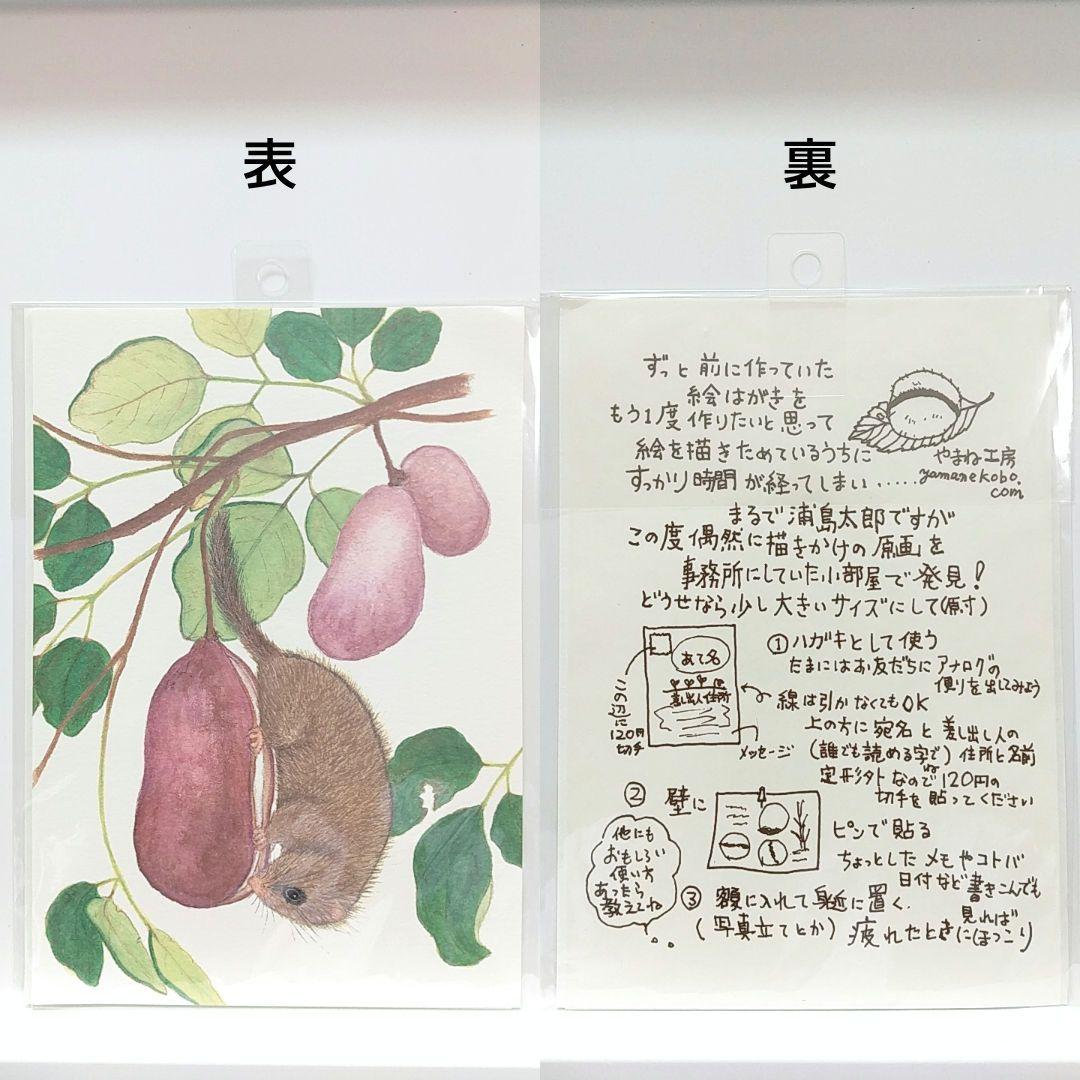 表
裏
ずっと前に作っていた
絵はがきを
もう1度作りたいと思って
絵を描きためているうちに
すっかり時間が経ってしまい.....
やまね工房
yamanekobo.
com
まるで浦島太郎ですが
この度偶然に描きかけの原画を
事務所にしていた小部屋で発見!
どうせなら少し大きいサイズにして(原寸)
①ハガキとして使う
たまにはお友だちにアナログの
便りを出してみよう
あて名
差出人住所
この辺に
120円
切手
線は引かなくてもOK
メッセージ
上の方に宛名と差し出し人の
(誰でも読める字でね)住所と名前
定形外なので120円の
切手を貼ってください
②壁に
ピンで貼る
ちょっとしたメモやコトバ
日付など書きこんでも
他にも
おもしろい
使い方
あったら
教えてね
③額に入れて身近に置く.
(写真立てとか)
見れば
疲れたときにほっこり